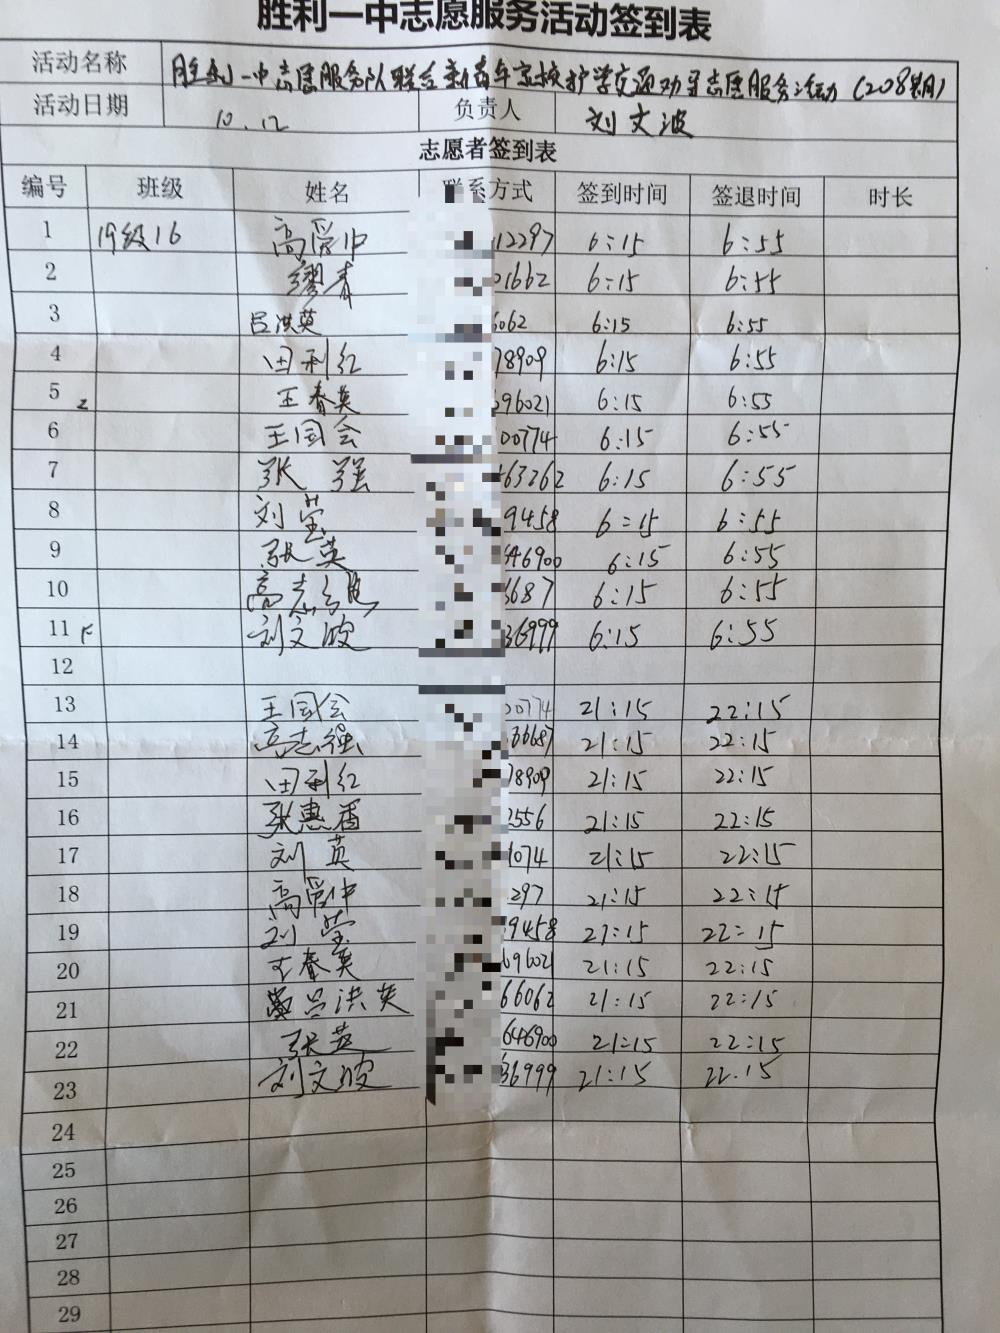 胜利一中志愿服务活动签到表
活动名称 胜利一中志愿服务队联合 家校护学交通劝导志愿服务活动（208期）
活动日期 10.12 负责人 刘文波
志愿者签到表
编号 班级 姓名 联系方式 签到时间 签退时间 时长
1 19级16 高爱中 12297 6:15 6:55
2 缪青 01662 6:15 6:55
3 吕洪英 6062 6:15 6:55
4 田利红 78909 6:15 6:55
5 王春英 696021 6:15 6:55
6 王国会 00774 6:15 6:55
7 张强 463262 6:15 6:55
8 刘莹 9458 6:15 6:55
9 张英 646900 6:15 6:55
10 高志强 6687 6:15 6:55
11 刘文波 36999 6:15 6:55
12
13 王国会 00774 21:15 22:15
14 高志强 36687 21:15 22:15
15 田利红 78909 21:15 22:15
16 张惠香 2556 21:15 22:15
17 刘英 1074 21:15 22:15
18 高爱中 297 21:15 22:15
19 刘莹 9458 21:15 22:15
20 王春英 696021 21:15 22:15
21 吕洪英 66062 21:15 22:15
22 张英 646900 21:15 22:15
23 刘文波 36999 21:15 22.15
24
25
26
27
28
29